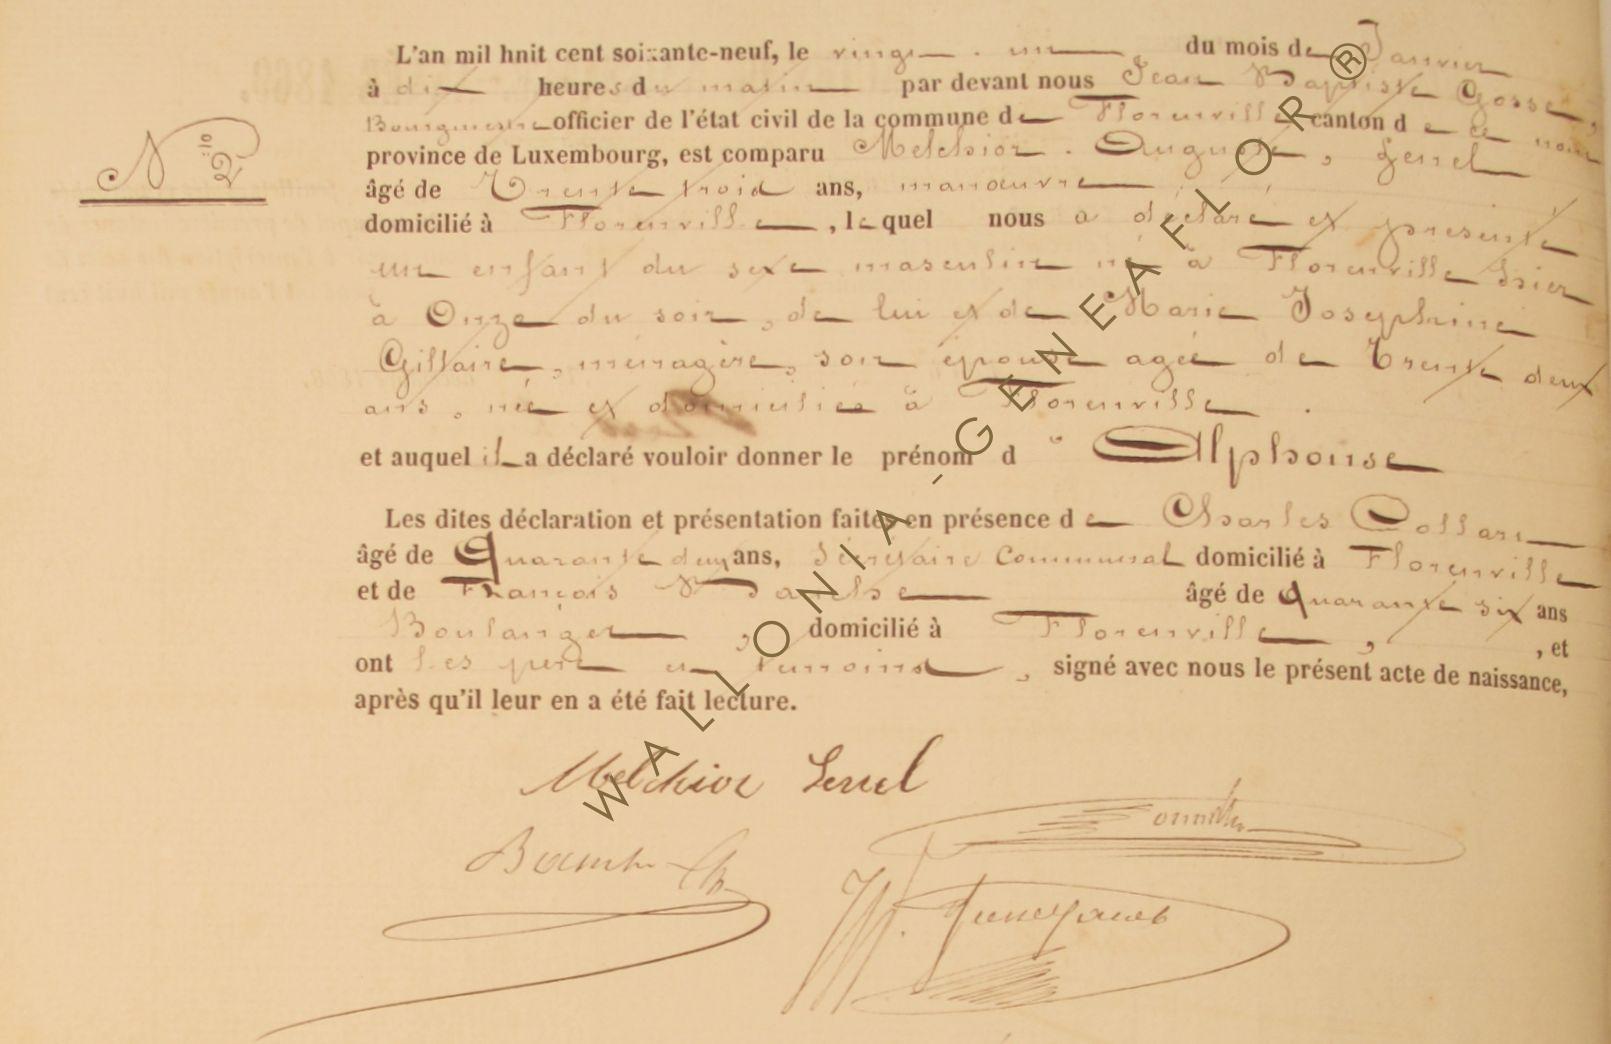 L'an mil huit cent soixante-neuf, le vingt un du mois de Janvier
à dix heures du matin par devant nous Jean Baptiste Gosse,
Bourgmestre officier de l'état civil de la commune de Florenville canton de ce nom
province de Luxembourg, est comparu Melchior Auguste,
N° 2
âgé de Trente trois ans, manœuvre
domicilié à Florenville, lequel nous a déclaré et présenté
un enfant du sexe masculin né à Florenville hier
à Onze du soir, de lui et de Marie Joséphine
Gillaire, ménagère, son épouse agée de Trente deux
ans, née et domiciliée à Florenville.
et auquel il a déclaré vouloir donner le prénom d' Alphonse
Les dites déclaration et présentation faites en présence de Charles Collard
âgé de Quarante deux ans, Sécrétaire Communal domicilié à Florenville
et de François âgé de Quarante six ans
Boulanger, domicilié à Florenville, , et
ont les père et témoins, signé avec nous le présent acte de naissance,
après qu'il leur en a été fait lecture.
Melchior
WALLONIA-GENEAFLOR®